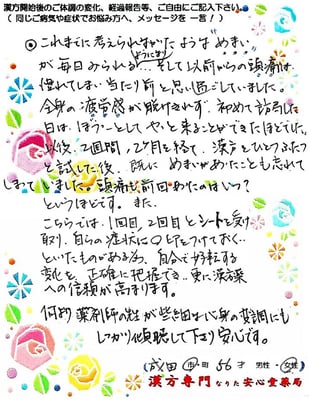 漢方開始後のご体調の変化、経過報告等、ご自由にご記入下さい。
（同じご病気や症状でお悩みの方へ、メッセージを一言！）
これまでに考えられなかったような"めまい"
が毎日みられる…ようになり そして以前からの頭痛は
慣れてしまい当たり前と思い過ごしていました。
全身の疲労感が脱けきれず、初めて訪問した
日は、ぼうーとして やっと来ることができたほどでした。
以後、2週間、2ヶ月を経て、漢方をひとつふたつ
と試した後、既にめまいがあったことも忘れて
しまっていました。頭痛も前回あったのはいつ？
というほどです。また、
こちらでは、1回目、2回目とシートを受け
取り、自らの症状に〇印をつけておく…
といったものがある為、自分で好転する
変化を、正確に把握でき…更に漢方薬
への信頼が高まります。
何より薬剤師の先生が些細な心身の変調にも
しっかり傾聴して下さり安心です。
（成田 市・町 56才 男性・女性）
漢方専門 なりた安心堂薬局